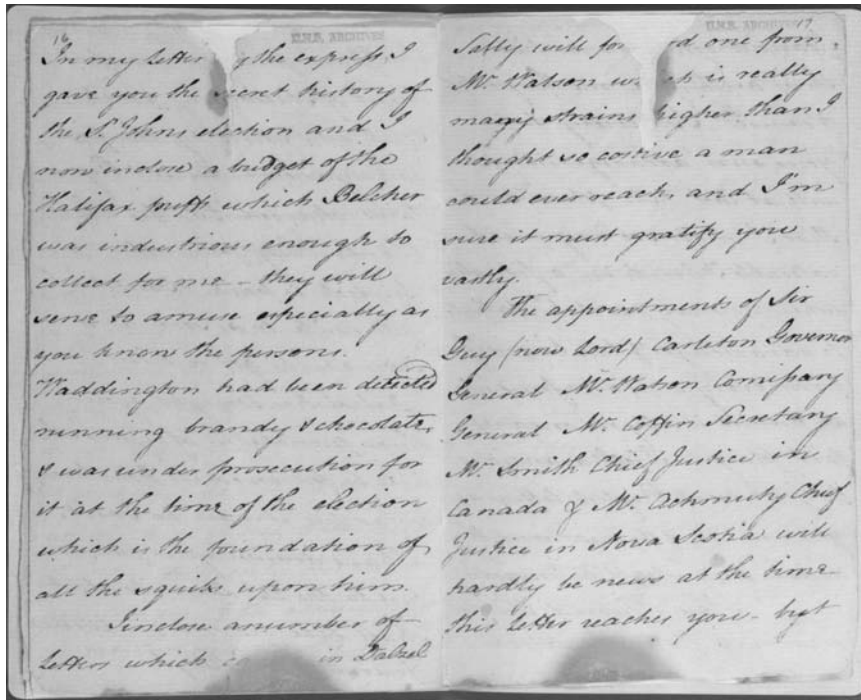 16
U.N.B. ARCHIVES
In my letter by the express, I
gave you the secret history of
the St. Johns election and I
now inclose a budget of the
Halifax puffs which Belcher
was industrious enough to
collect for me - they will
serve to amuse especially as
you know the persons.
Waddington had been detected
running brandy & chocolate,
& was under prosecution for
it at the time of the election
which is the foundation of
all the squibs upon him.
I inclose a number of
letters which in Dalzel
17
U.N.B. ARCHIVES
Sally will for rd one from
Mr. Watson wh ch is really
many strains higher than I
thought so costive a man
could ever reach, and I'm
sure it must gratify you
vastly.
The appointments of Sir
Guy (now Lord) Carleton Governor
General Mr. Watson Comissary
General Mr. Coffin Secretary
Mr. Smith Chief Justice in
Canada & Mr. Achmuty Chief
Justice in Nova Scotia will
hardly be news at the time
this letter reaches you - but